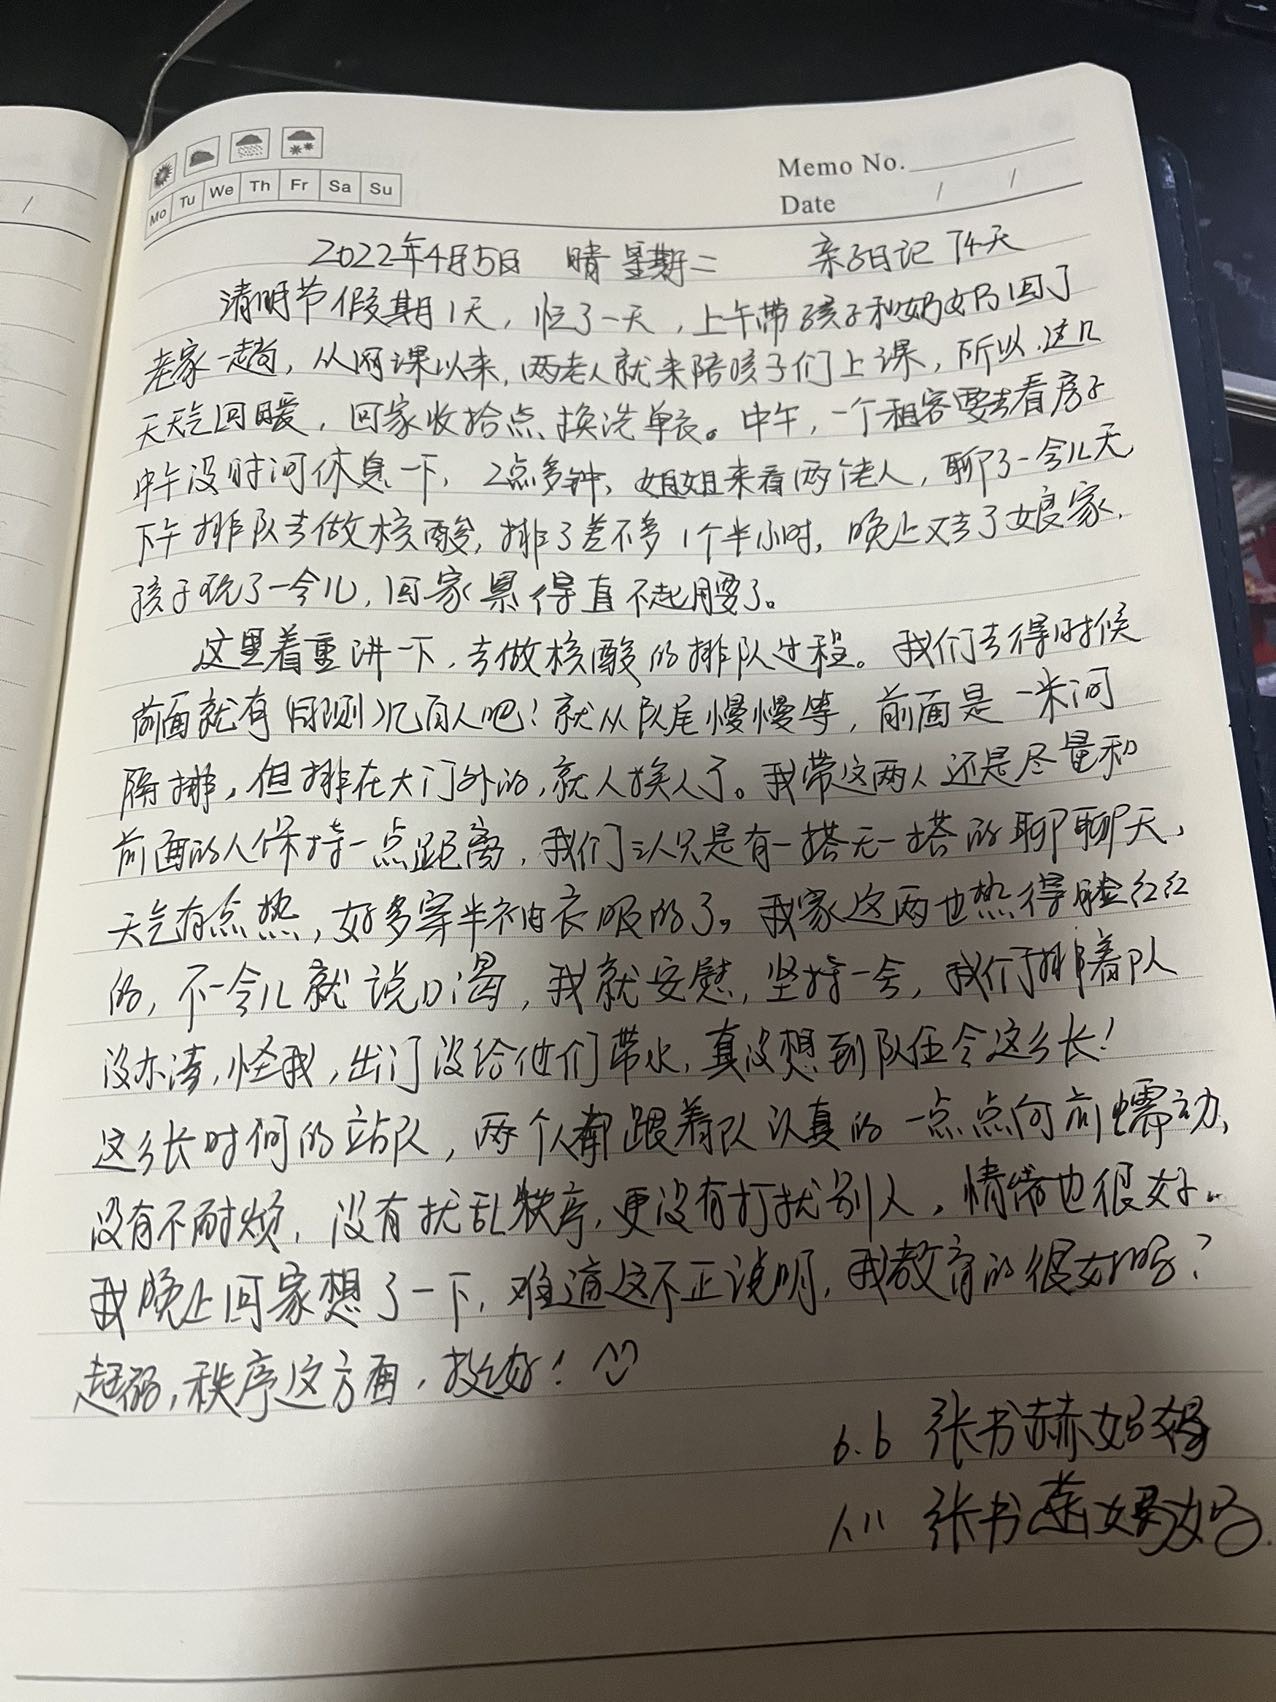 Mo Tu We Th Fr Sa Su
Memo No.
Date / /
2022年4月5日 晴 星期二 亲子日记 74天
清明节假期1天，忙了一天，上午带孩子和奶奶回了
老家一趟，从网课以来，两老人就来陪孩子们上课，所以，这几
天天气回暖，回家收拾点换洗单衣。中午，一个租客要去看房子
中午没时间休息一下，2点多钟，姐姐来看两个老人，聊了一会儿天
下午排队去做核酸，排了差不多1个半小时，晚上又去了娘家，
孩子玩了一会儿，回家累得直不起腰了。
这里着重讲一下，去做核酸的排队过程。我们去得时候
前面就有(目测)几百人吧！就从队尾慢慢等，前面是一米间
隔排，但排在大门外的，就人挨人了。我带这两人还是尽量和
前面的人保持一点距离，我们三人只是有一搭无一搭的聊聊天，
天气有点热，好多穿半袖衣服的了。我家这两也热得脸红红
的，不一会儿就说口渴，我就安慰，坚持一会，我们排着队
没办法，怪我，出门没给他们带水，真没想到队伍会这么长！
这么长时间的站队，两个人都跟着队认真的一点点向前蠕动，
没有不耐烦，没有扰乱秩序，更没有打扰别人，情绪也很好。
我晚上回家想了一下，难道这不正说明，我教育的很好吗？
起码，秩序这方面，挺好！
6.6 张书赫妈妈
1.11 张书 妈妈